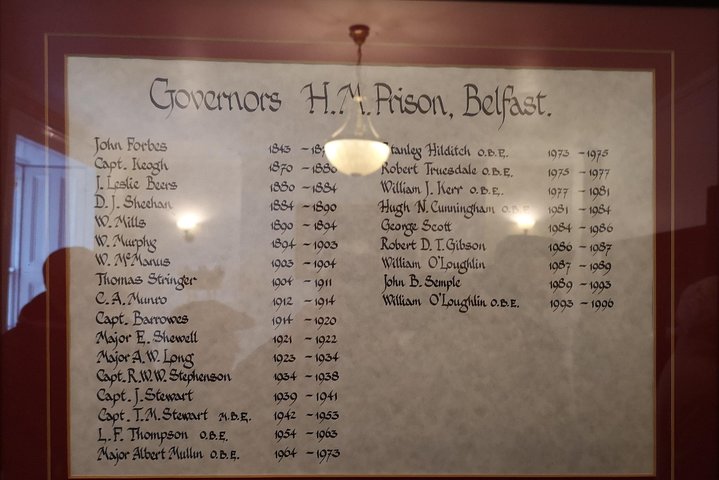 Governors H.M. Prison, Belfast.
John Forbes 1843 -
Capt. Keogh 1870 - 1880
J. Leslie Beers 1880 - 1884
D. J. Sheehan 1884 - 1890
W. Mills 1890 - 1894
W. Murphy 1894 - 1903
W. McManus 1903 - 1904
Thomas Stringer 1904 - 1911
C. A. Munro 1912 - 1914
Capt. Barrowes 1914 - 1920
Major E. Shewell 1921 - 1922
Major A. W. Long 1923 - 1934
Capt. R. W. W. Stephenson 1934 - 1938
Capt. J. Stewart 1939 - 1941
Capt. T. M. Stewart M.B.E. 1942 - 1953
L. F. Thompson O.B.E. 1954 - 1963
Major Albert Mullin O.B.E. 1964 - 1973
Stanley Hilditch O.B.E. 1973 - 1975
Robert Truesdale O.B.E. 1975 - 1977
William J. Kerr O.B.E. 1977 - 1981
Hugh N. Cunningham O.B.E. 1981 - 1984
George Scott 1984 - 1986
Robert D. T. Gibson 1986 - 1987
William O'Loughlin 1987 - 1989
John B. Semple 1989 - 1993
William O'Loughlin O.B.E. 1993 - 1996